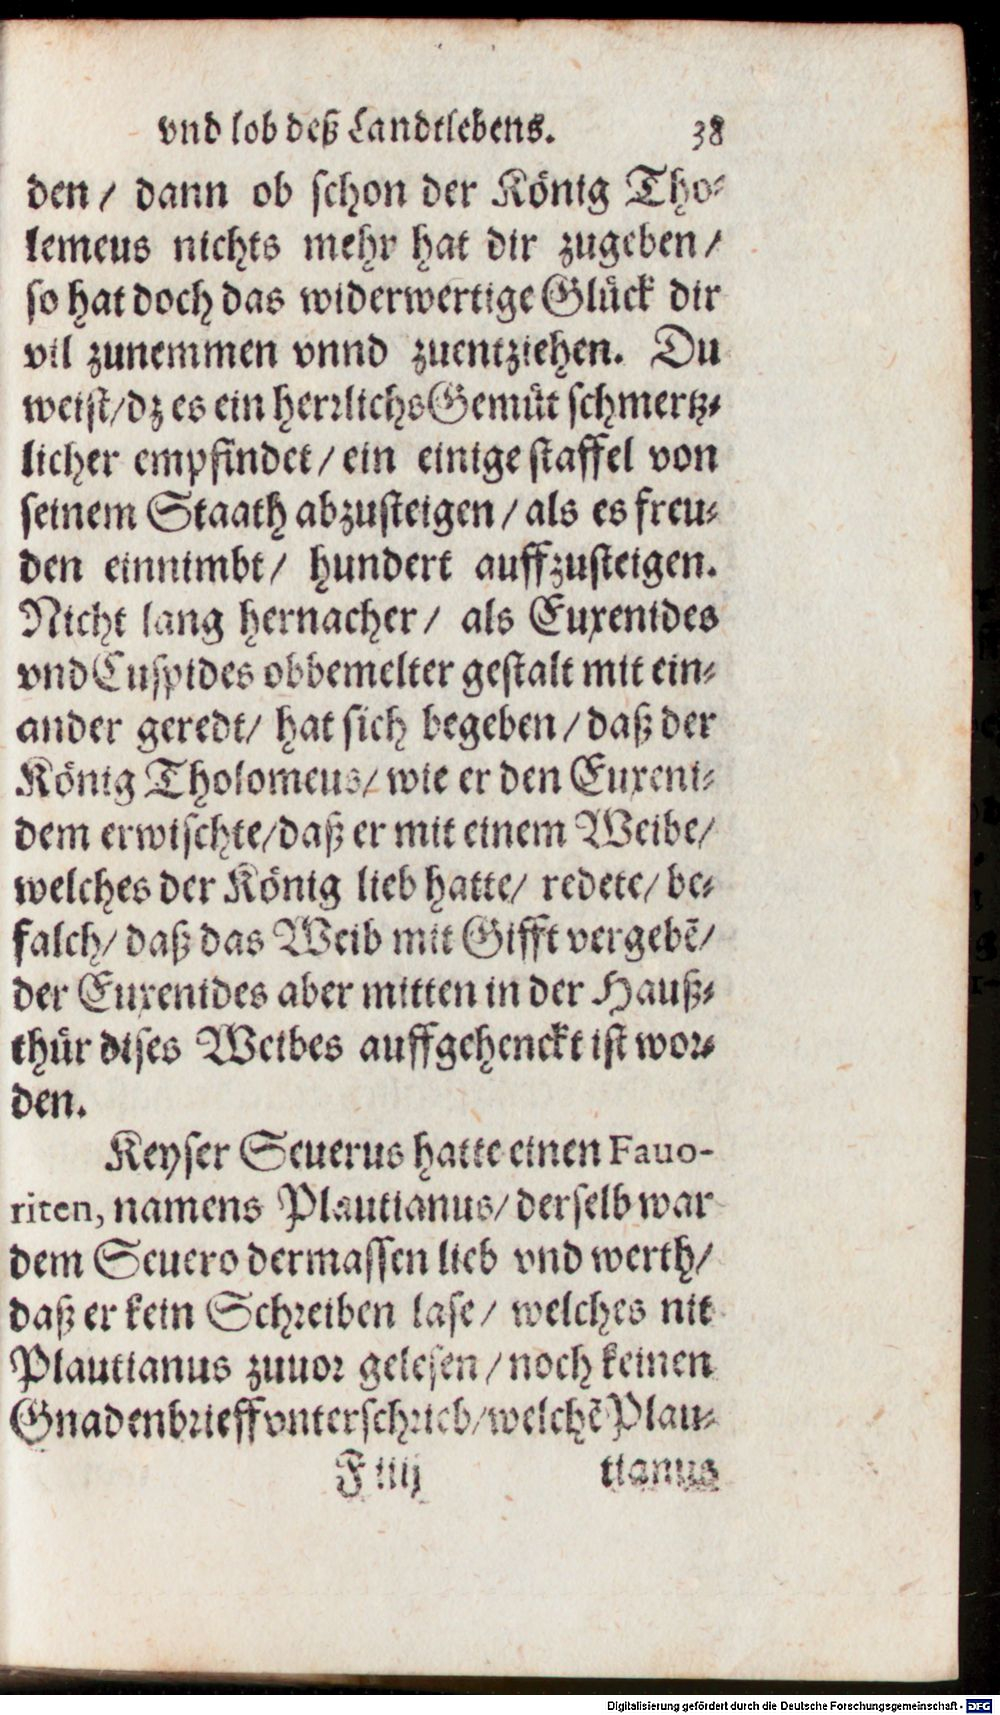 vnd lob deß Landtlebens. 38
den / dann ob schon der König Tho-
lemeus nichts mehr hat dir zugeben /
so hat doch das widerwertige Glück dir
vil zunemmen vnnd zuentziehen. Du
weist / dz es ein herrlichs Gemüt schmertz-
licher empfindet / ein einige staffel von
seinem Staath abzusteigen / als es freu-
den einnimbt / hundert auffzusteigen.
Nicht lang hernacher / als Euxenides
vnd Cuspides obbemelter gestalt mit ein-
ander geredt / hat sich begeben / daß der
König Tholomeus / wie er den Euxeni-
dem erwischte / daß er mit einem Weibe /
welches der König lieb hatte / redete / be-
falch / daß das Weib mit Gifft vergebē /
der Euxenides aber mitten in der Hauß-
thür dises Weibes auffgehenckt ist wor-
den.
Keyser Seuerus hatte einen Fauo-
riten, namens Plautianus / derselb war
dem Seuero dermassen lieb vnd werth /
daß er kein Schreiben lase / welches nit
Plautianus zuuor gelesen / noch keinen
Gnadenbrieff vnterschrieb / welchē Plau-
F iiij tianus
Digitalisierung gefördert durch die Deutsche Forschungsgemeinschaft - DFG